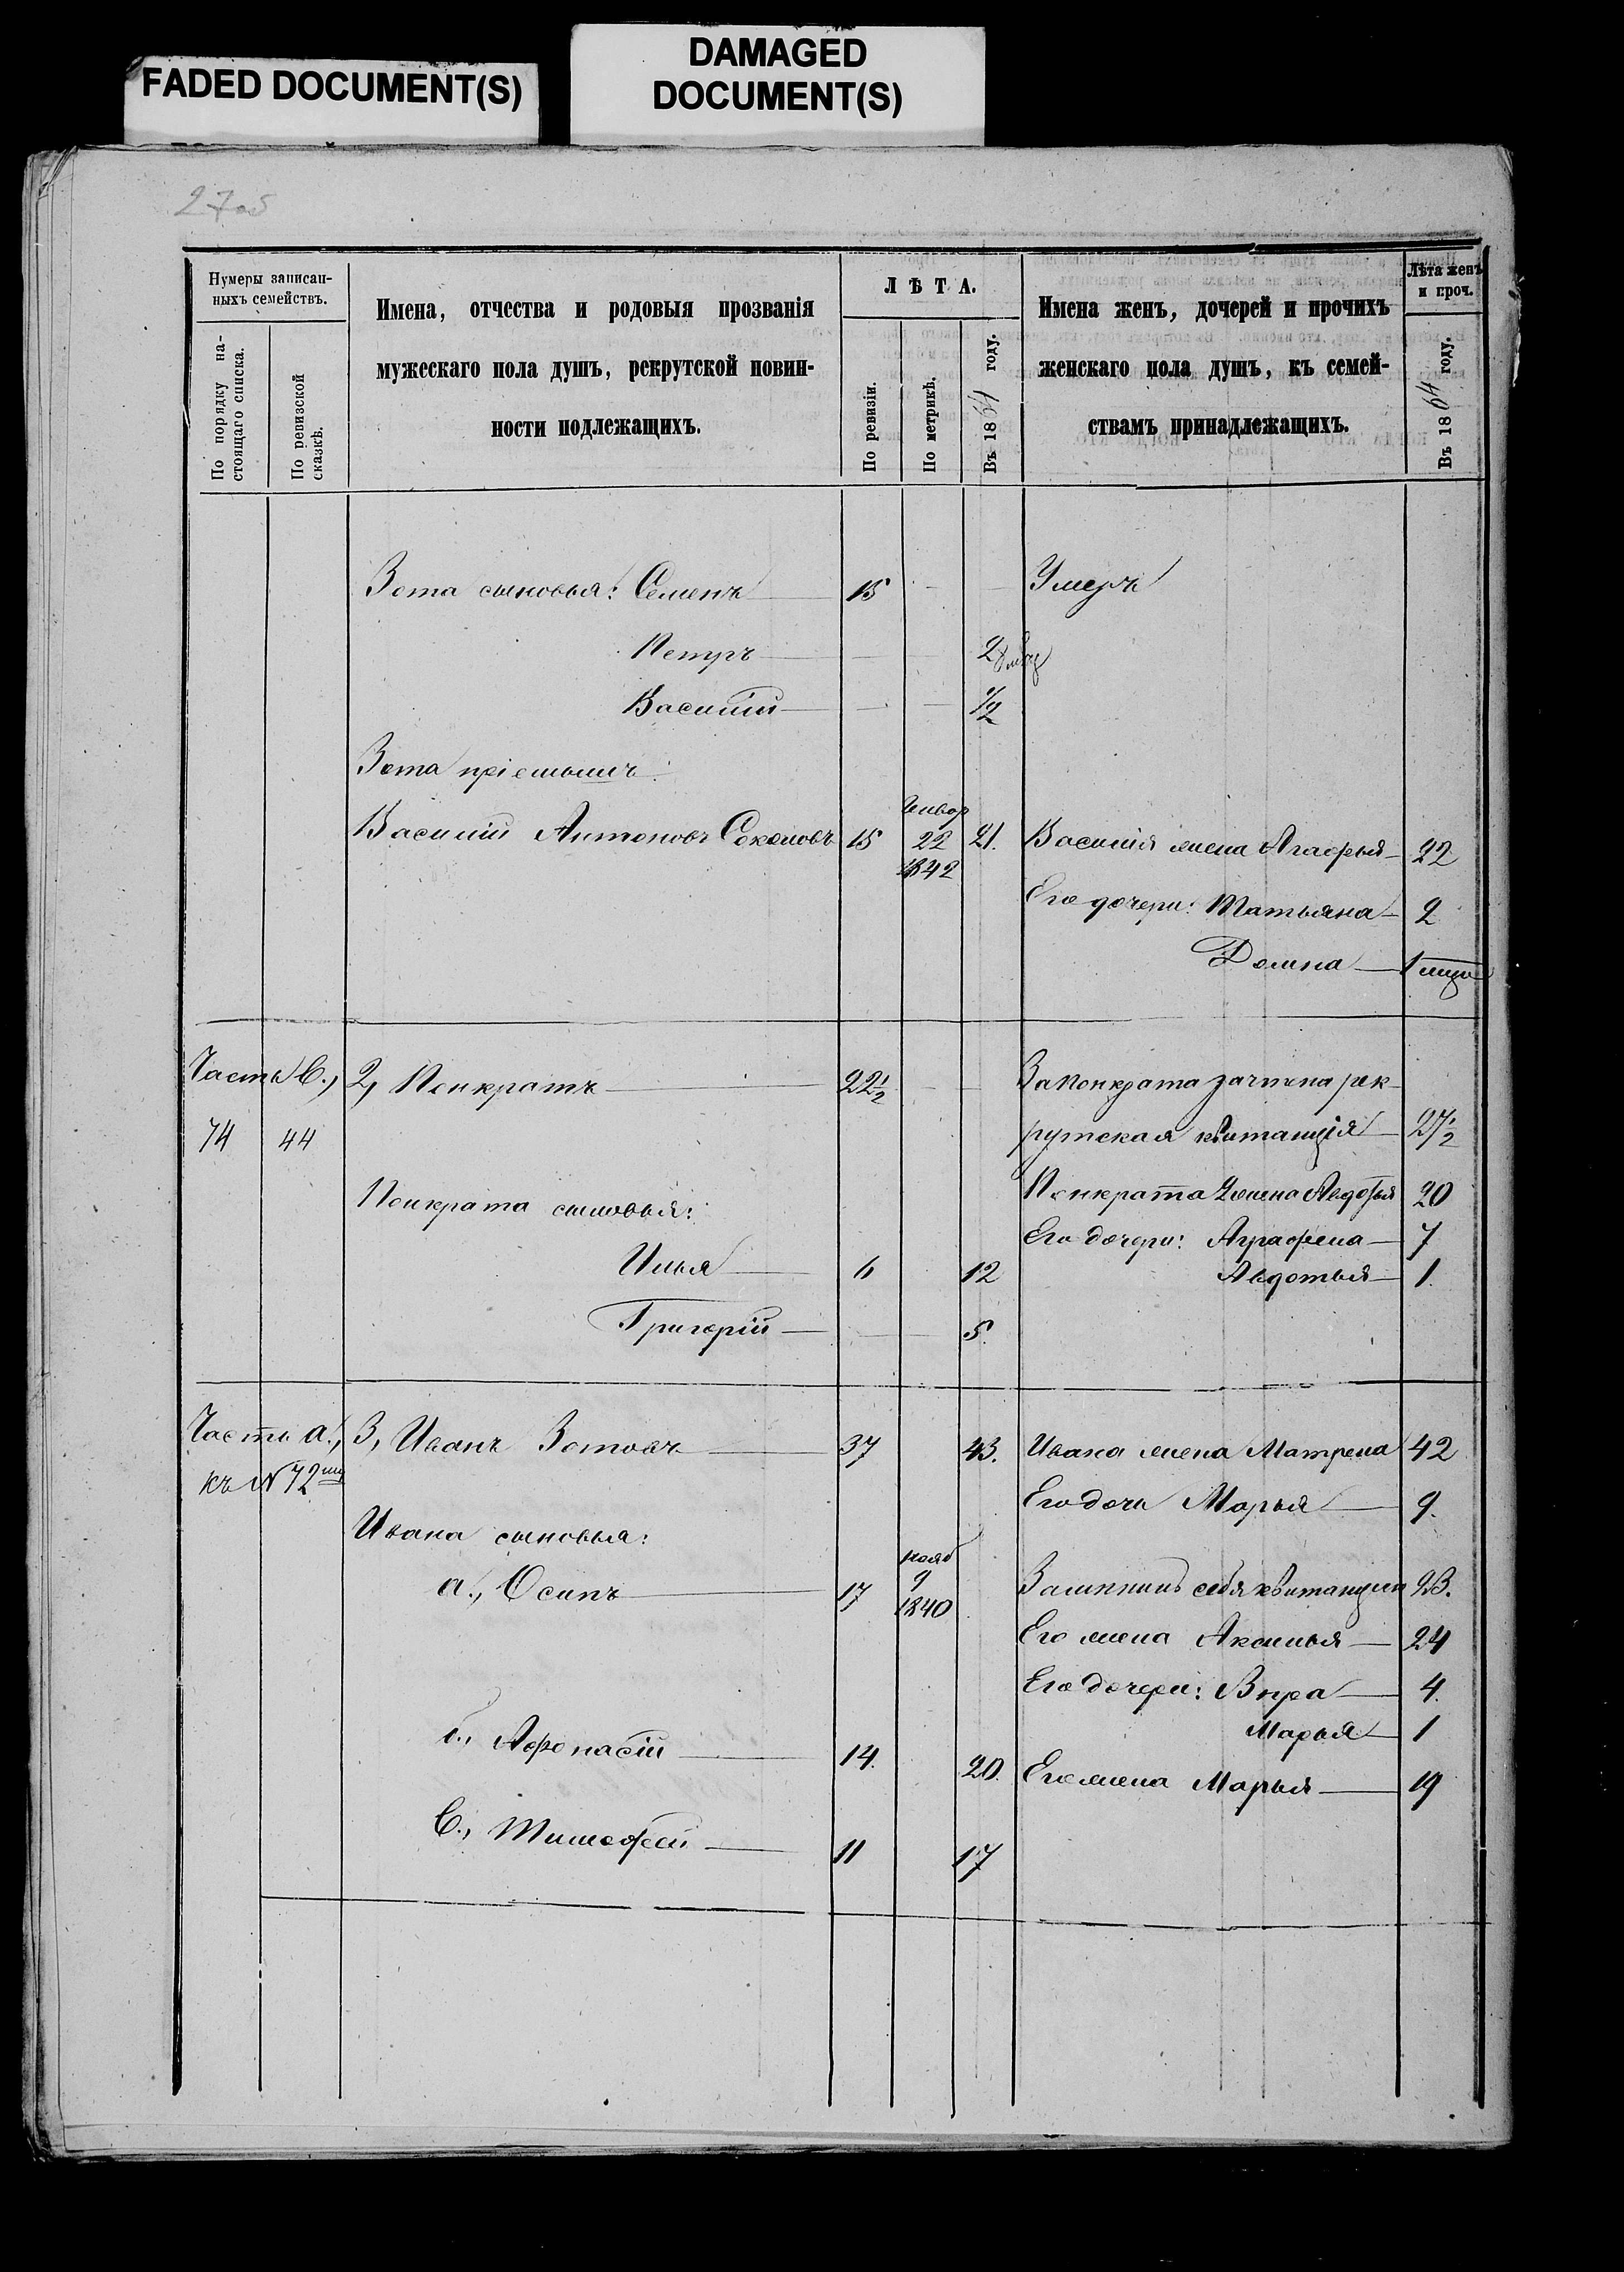 FADED DOCUMENT(S)
DAMAGED
DOCUMENT(S)
27об
Нумеры записан-
ныхъ семействъ.
По порядку на-
стоящаго списка.
По ревизской
сказкѣ.
Имена, отчества и родовыя прозванія
мужескаго пола душъ, рекрутской повин-
ности подлежащихъ.
ЛѢТА.
По ревизіи.
По метрикѣ.
Въ 1864 году.
Имена женъ, дочерей и прочихъ
женскаго пола душъ, къ семей-
ствамъ принадлежащихъ.
Лѣта женъ
и проч.
Въ 1864 году.
Зота сыновья: Семенъ 15 Умеръ
Петръ 2
Василій 1/2
Зота пріемышъ
Василій Антоновъ Соколовъ 15 Генвар 22 1842 21. Василія жена Агафья 22
Его дочери: Татьяна 2
Домна 1 мѣся
Часть в., 2, Понкратъ 22 1/2 За Понкрата зачтена рек-
74 44 рутская квитанція 27 1/2
Понкрата сыновья: Понкрата 2 жена Авдотья 20
Его дочери: Аграфена 7
Илья 6 12 Авдотья 1.
Григорій 5.
Часть а., 3, Иванъ Зотовъ 37 43. Ивана жена Матрена 42
къ N 72му
Его дочь Марья 9.
Ивана сыновья:
а., Осипъ 17 нояб 9 1840 себя квитанціи 23.
Его жена Аксинья 24
Его дочери: Вѣра 4.
Марья 1
б., Афонасій 14. 20. Его жена Марья 19
в., Тимофей 11 17